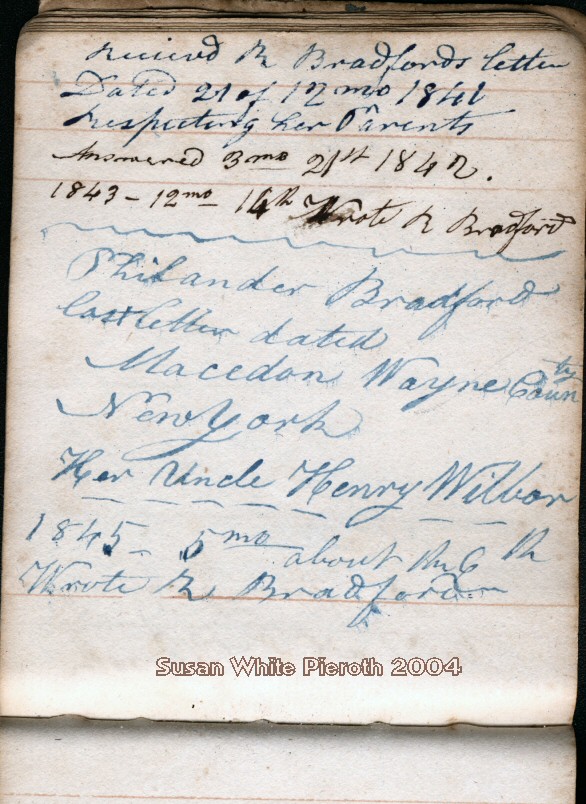 Recieved R Bradfords letter
Dated 21 of 12 mo 1841
Respecting her Parents
Answered 3mo 21st 1842.
1843 - 12mo 14th Wrote R Bradford
Philander Bradford
last letter dated
Macedon Wayne County
New York
Her Uncle Henry Wilbor
1845 - 5mo about the 6th
Wrote R Bradford
Susan White Pieroth 2004